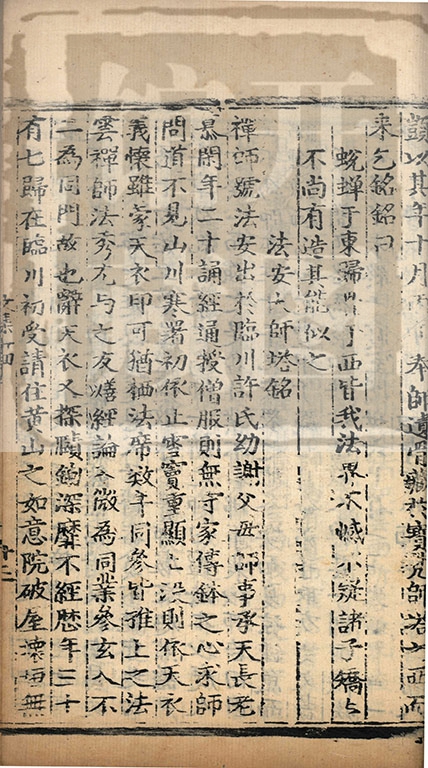 以其年十月 奉師遺骨藏於 師塔之西而
来乞銘銘曰
蛻蟬于東歸 于西皆我法界不慽不疑諸子矯矯
不尚有造其能似之
法安大師塔銘
禪師號法安出於臨川許氏幼謝父母師事承天長老
慕閑年二十誦經通授僧服則無守家傳鉢之心求師
問道不見山川寒暑初依止雪竇重顯顯没則依天衣
義懷雖蒙天衣印可猶栖法席数年同參皆推上之法
雲禪師法秀尤与之友 經論入微為同業參玄入不
二為同門故也辭天衣又探賾鉤深靡不經歷年三十
有七歸在臨川初受請住黄山之如意院破屋壞垣無
文集